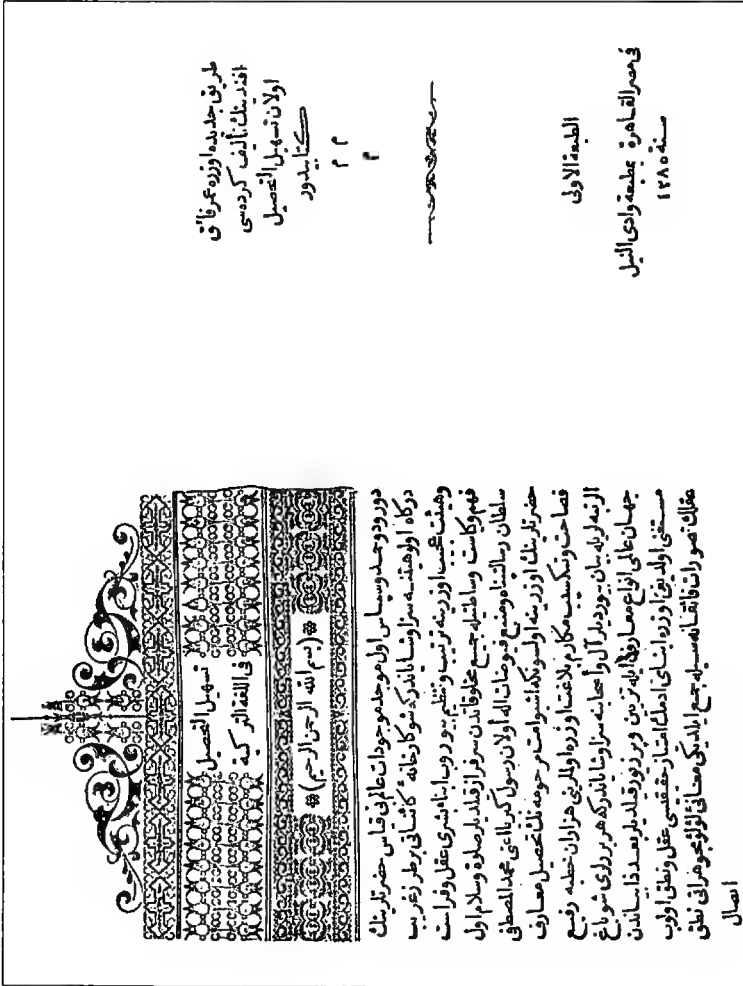 طریق جدیده اوزره عمر فائق
افندینك تألیف كرده سی
اولان تسهیل التحصیل
كتابیدر
م م
م
الطبعة الاولى
فى مصر القاهرة بمطبعة وادى النيل
سنة ١٢٨٥
تسهيل التحصيل
فى اللغة التركية
(بسم الله الرحمن الرحيم)
درود وحمد وسپاس اول موجد موجودات عالم فياض حضرتلرينك
دركاه الوهيتنه سزا وشاياندركه شو كارخانه كائناتى بر طرز غريب
وهيئت عجيب اوزرينه ترتيب وتنظيم بيوروب ابناء بشرى عقل وفراست
فهم وكاست وساطتيله جميع مخلوقاتدن سرفراز قلديلر صلاة وسلام اول
سلطان رسالتپناه ومنبع فيوضات اله اولان رسول كبريا اعنى محمد المصطفى
حضرتلرينك اوزرينه اولسونكه اشبو امت مرحومه نك تحصيل معارف
فصاحت ونكسب مكارم بلاغت اوزره اولملرينى هزاران خطبه رفيع
الرتبه لريله بيان بيورديلر آل واصحابنه سزا وشاياندركه هر برلرى شو باغ
جهان عالمى انواع معارفله تزيين وپر نور قلديلر بعد ذا بساندن
مستغنى اولديغى اوزره ابناى آدمك امتياز حقيقيسى عقل ونطق اولوب
عقلك تصورات فائقانه سيله جمع ايلديكى معانى لؤلؤ جوهرانى نطق
اتصال